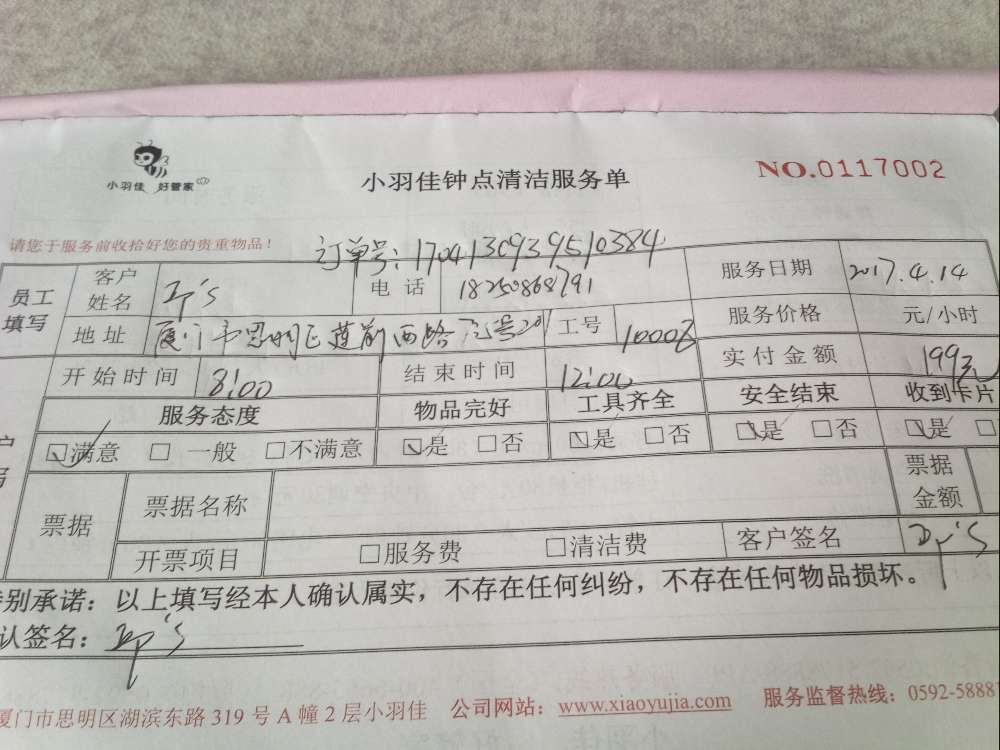 小羽佳 好管家
小羽佳钟点清洁服务单
NO.0117002
请您于服务前收拾好您的贵重物品!
订单号:1704130939510384
员工填写 客户姓名 电话 18250868791 服务日期 2017.4.14
地址 厦门市思明区莲前西路 工号 服务价格 元/小时
开始时间 8:00 结束时间 12:00 实付金额 199元
服务态度 物品完好 工具齐全 安全结束 收到卡片
☑满意 □一般 □不满意 ☑是 □否 ☑是 □否 ☑是 □否 ☑是 □
票据 票据名称 票据金额
开票项目 □服务费 □清洁费 客户签名
别承诺:以上填写经本人确认属实,不存在任何纠纷,不存在任何物品损坏。
认签名:
厦门市思明区湖滨东路 319 号 A 幢 2 层小羽佳 公司网站:www.xiaoyujia.com 服务监督热线:0592-5888